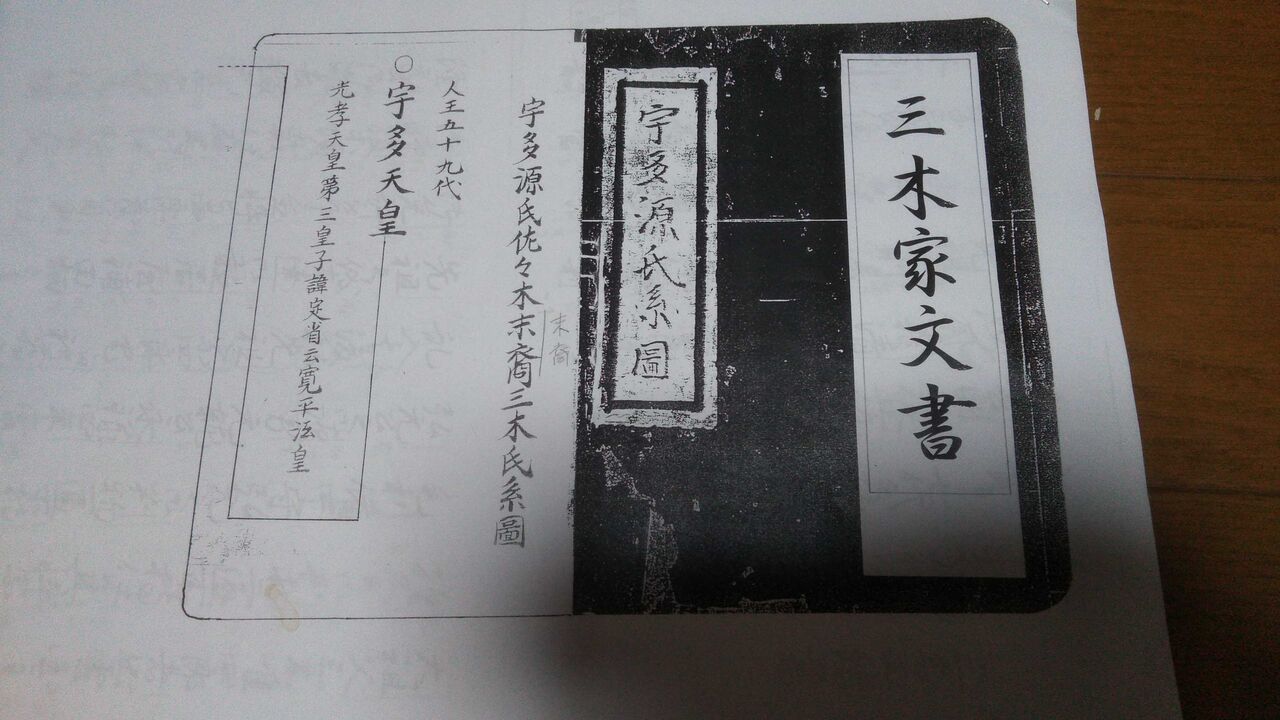 三木家文書
宇多源氏系圖
宇多源氏佐々木末裔三木氏系圖
末裔
人王五十九代
○宇多天皇
光孝天皇第三皇子諱定省云寛平法皇